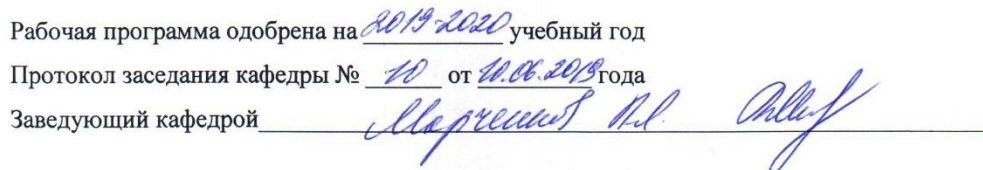 Рабочая программа одобрена на 2019-2020 учебный год
Протокол заседания кафедры № 10 от 10.06.2019 года
Заведующий кафедрой